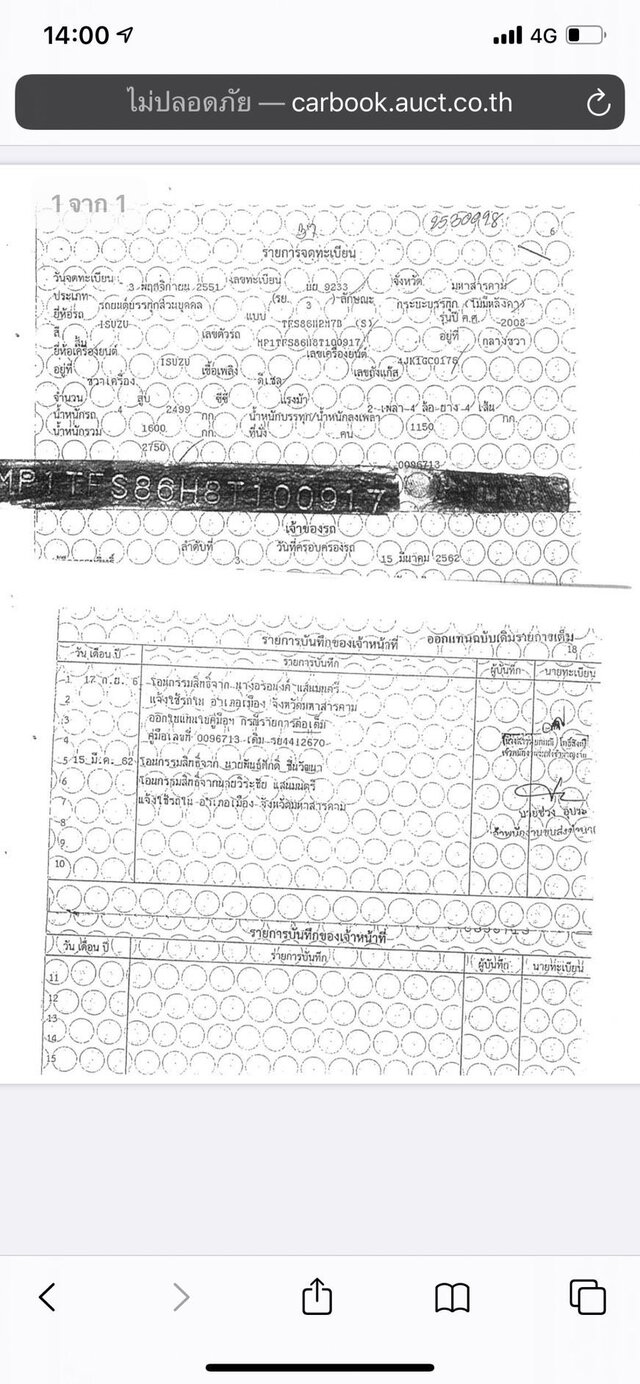 14:00
4G
ไม่ปลอดภัย — carbook.auct.co.th
1 จาก 1
6
รายการจดทะเบียน
วันจดทะเบียน 3 พฤศจิกายน 2551 เลขทะเบียน 9233 จังหวัด มหาสารคาม
ประเภท รถยนต์บรรทุกส่วนบุคคล (รย. 3 ) ลักษณะ กระบะบรรทุก (ไม่มีหลังคา)
ยี่ห้อรถ ISUZU แบบ รุ่นปี ค.ศ. 2008
สี เลขตัวรถ MP1TFS86H8T100917 อยู่ที่ กลางขวา
ยี่ห้อเครื่องยนต์ ISUZU เลขเครื่องยนต์
อยู่ที่ ขวาเครื่อง เชื้อเพลิง ดีเซล เลขถังแก๊ส
จำนวน 4 สูบ 2499 ซีซี แรงม้า 2 เพลา 4 ล้อ ยาง 4 เส้น
น้ำหนักรถ 1600 กก. น้ำหนักบรรทุก/น้ำหนักลงเพลา 1150 กก.
น้ำหนักรวม 2750 กก. ที่นั่ง คน
0096713
MP1TFS86H8T100917
เจ้าของรถ
ลำดับที่ 3 วันที่ครอบครองรถ 15 มีนาคม 2562
รายการบันทึกของเจ้าหน้าที่ ออกแทนฉบับเดิมรายการเต็ม
18
วัน เดือน ปี รายการบันทึก ผู้บันทึก นายทะเบียน
1 17 ก.ย. 6 โอนกรรมสิทธิ์จาก
2 แจ้งใช้รถใน อำเภอเมือง จังหวัดมหาสารคาม
3
4 คู่มือเลขที่ 0096713 เดิม
5 15 มี.ค. 62 โอนกรรมสิทธิ์จาก นายพันธ์ศักดิ์ ชื่นวัฒนา
6 โอนกรรมสิทธิ์จากนายวิระชัย แสนมนตรี
7 แจ้งใช้รถใน อำเภอเมือง จังหวัดมหาสารคาม
8
9
10
รายการบันทึกของเจ้าหน้าที่
วัน เดือน ปี รายการบันทึก ผู้บันทึก นายทะเบียน
11
12
13
14
15